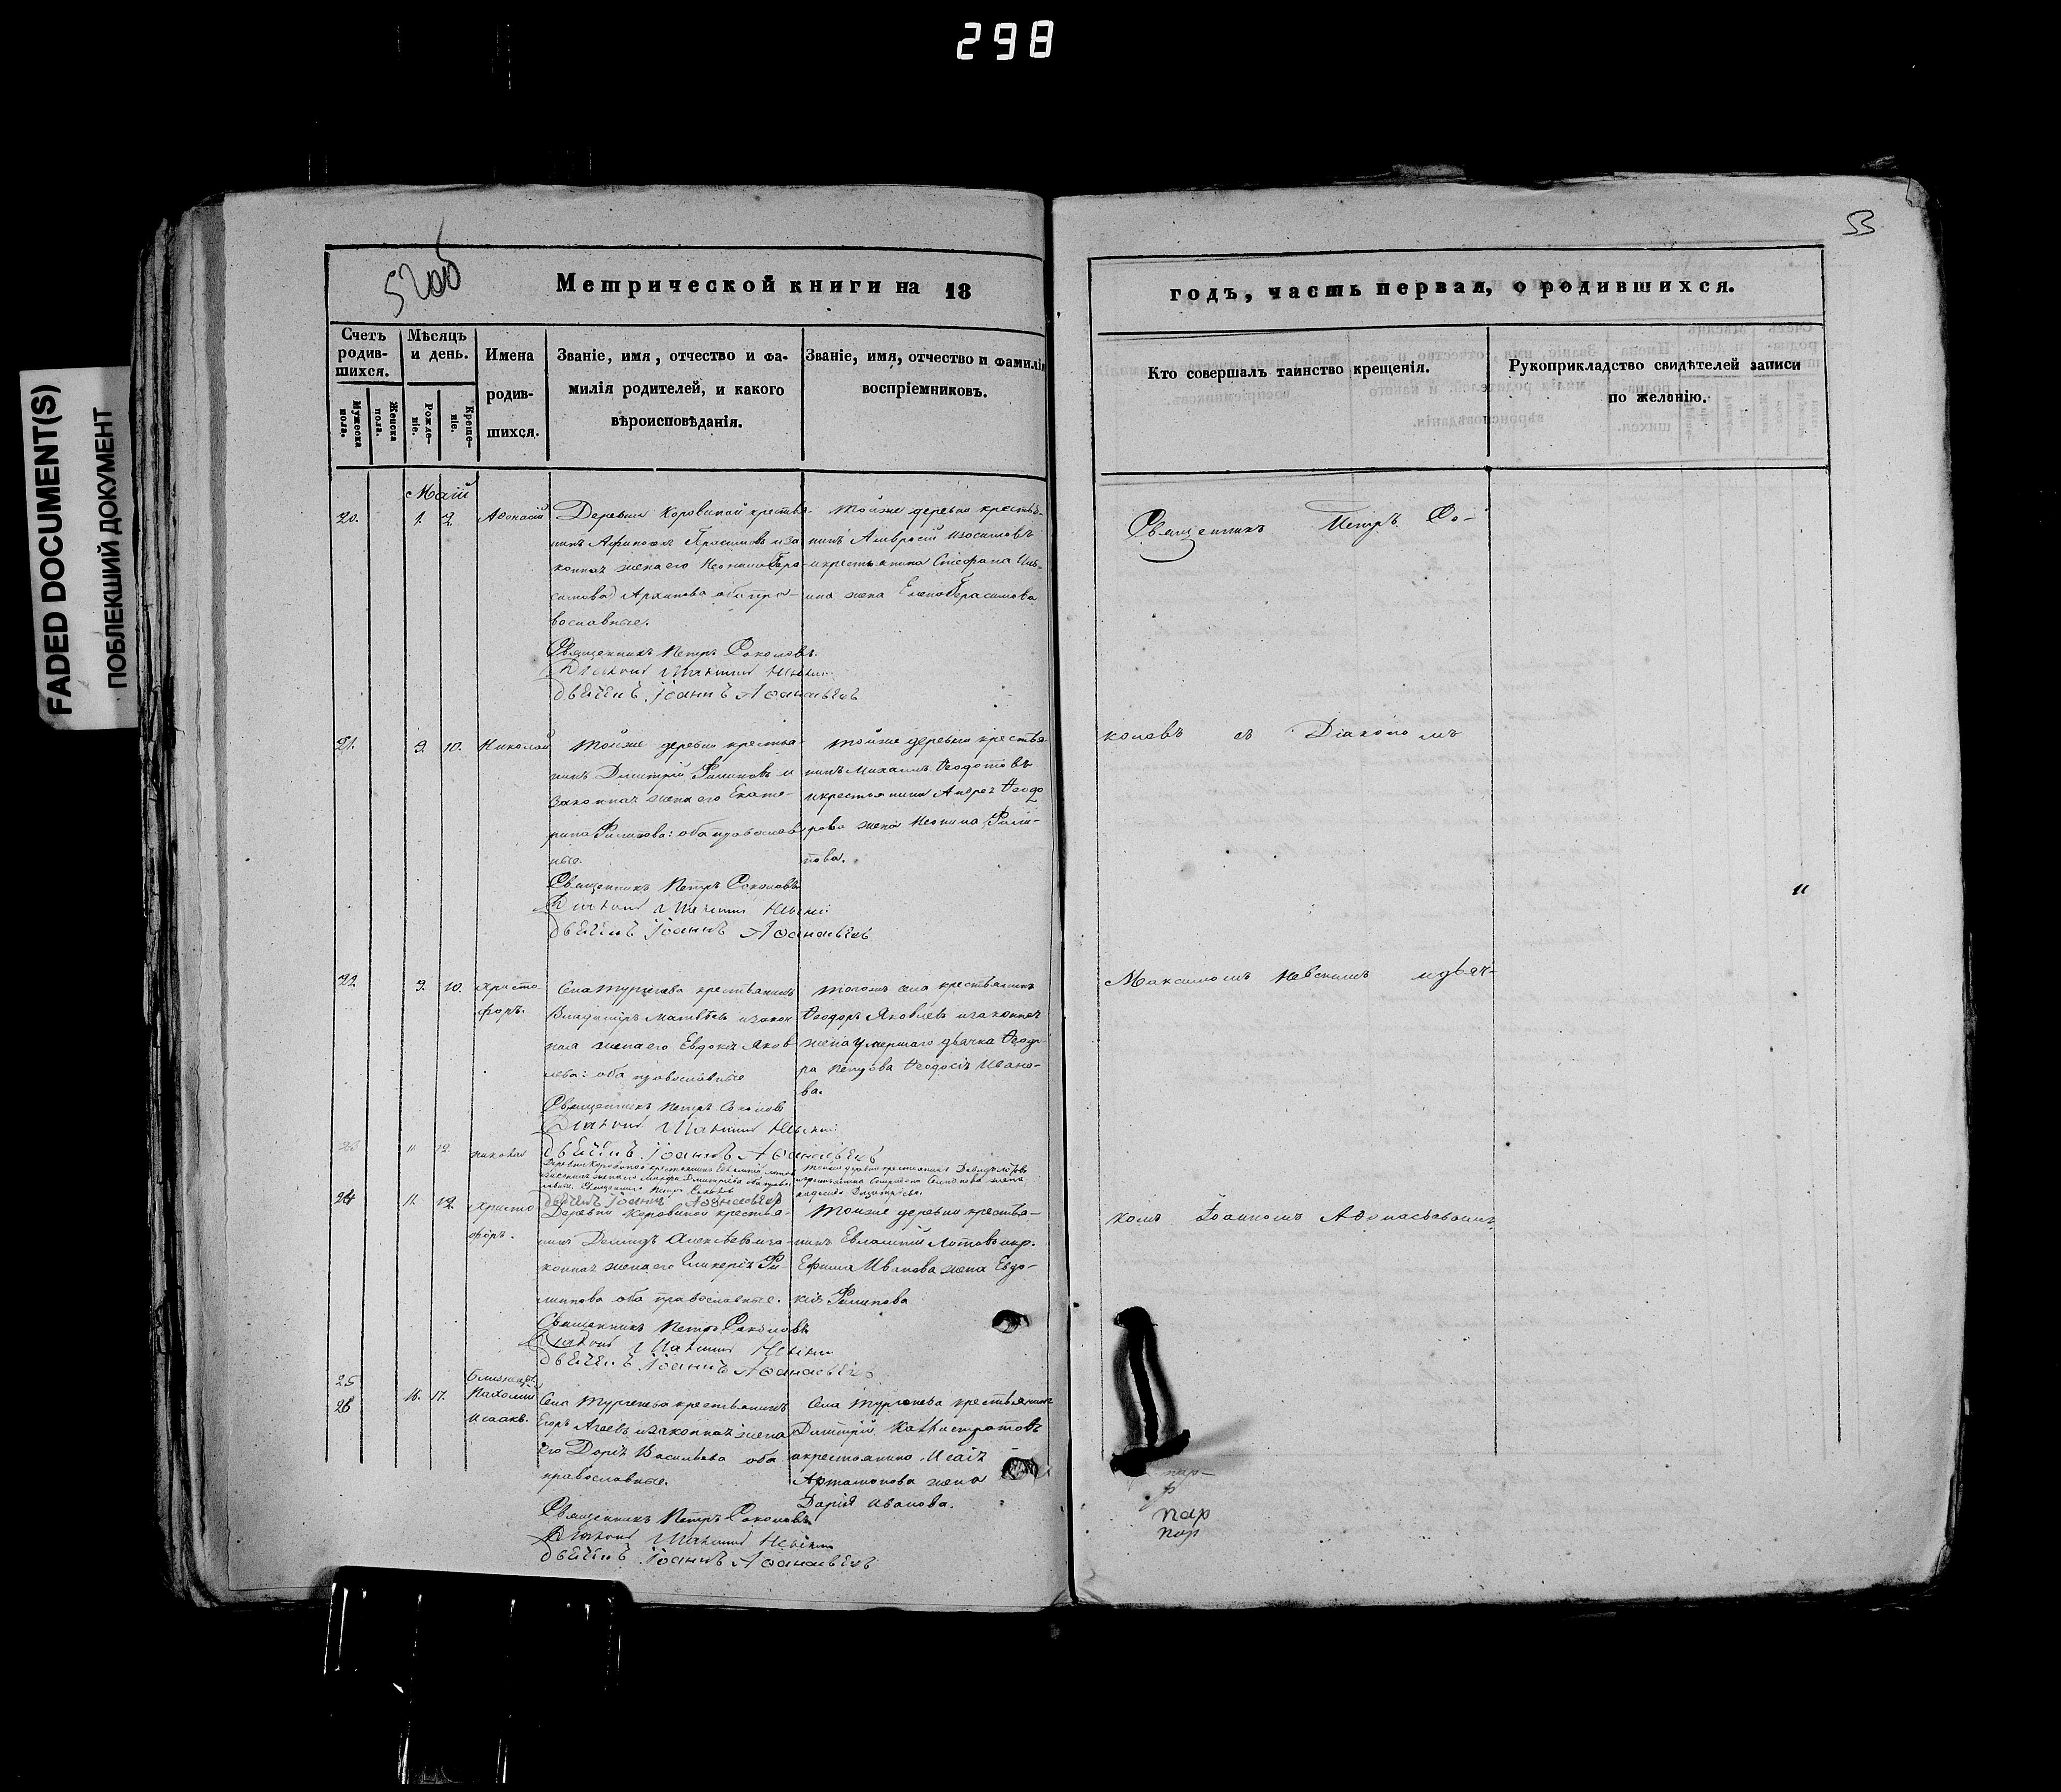 298
FADED DOCUMENT(S)
ПОБЛЕКШИЙ ДОКУМЕНТ
52об
Метрической книги на 18
Счетъ родив-шихся.
Мужеска пола.
Женска пола.
Мѣсяцъ и день.
Рожде-ніе.
Креще-ніе.
Имена родив-шихся.
Званіе, имя, отчество и фа-
милія родителей, и какого
вѣроисповѣданія.
Званіе, имя, отчество и фамилія
воспріемниковъ.
Маій
20.
1. 2.
Аѳонасій
Деревни Коровиной крестья-
нинъ Герасимовъ и за
конная жена его
Архипова оба пра-
вославные.
Священникъ Петръ Соколовъ.
Діаконъ Максимъ Невскій
дьячекъ Іоаннъ Аѳанасьевъ
Тойже деревни крестья-
нинъ Амвросій Изосимовъ
и крестьянина Стефана Иль-
ина жена Елена Герасимова
21.
9. 10.
Николай
Тойже деревни крестья-
нинъ Димитрій Филиповъ и
законная жена его Екате-
рина Филипова: оба православ
ные.
Священникъ Петръ Соколовъ
Діаконъ Максимъ Невскій
дьячекъ Іоаннъ Аѳанасьевъ
Тойже деревни крестья-
нинъ Михаилъ Ѳеодотовъ
и крестьянина Андрея Ѳеодо
рова жена Неонила Фили-
пова.
22
9. 10.
Христо
форъ.
Села Тургенева крестьянинъ
Владимиръ Матвѣевъ и закон
ная жена его Евдокія Яков
лева: оба православные
Священникъ Петръ Соколовъ
Діаконъ Максимъ Невскій
дьячекъ Іоаннъ Аѳанасьевъ
тогожъ села крестьянинъ
Ѳеодоръ Яковлевъ и законная
жена умершаго дьячка Ѳеодо
ра Петрова Ѳеодосія Ивано-
ва.
23
11 12.
Николай
Деревни Коровиной крестьянинъ Евлампій
законная жена его Димитріева оба право
славные. Священникъ Петръ
дьячекъ Іоаннъ Аѳанасьевъ
Тойже деревни крестьянинъ
крестьянина жена
24
11. 12.
Христо
форъ.
Деревни Коровиной крестья-
нинъ Демидъ Алексѣевъ и за-
конная жена его Гликерія Фи-
липова оба православные.
Священникъ Петръ Соколовъ
Діаконъ Максимъ Невскій
дьячекъ Іоаннъ Аѳанасьевъ
Тойже деревни крестья-
нинъ Евлампій Лотовъ и кр.
Ефима Иванова жена Евдо-
кія Филипова
25
26
16. 17.
Близнецы
Пахомій
Исаакъ.
Села Тургенева крестьянинъ
Егоръ Агеевъ и законная жена
его Дарія Васильева оба
православные.
Священникъ Петръ Соколовъ
Діаконъ Максимъ Невскій
дьячекъ Іоаннъ Аѳанасьевъ
Села Тургенева крестьянинъ
Димитрій Каллистратовъ
и крестьянина Исаія
Артамонова жена
Дарія Иванова.
53
годъ, часть первая, о родившихся.
Кто совершалъ таинство крещенія.
Рукоприкладство свидѣтелей записи
по желанію.
Священникъ Петръ Со-
коловъ съ Діакономъ
Максимомъ Невскимъ и дьяч-
комъ Іоанномъ Аѳонасьевымъ
пар
пар